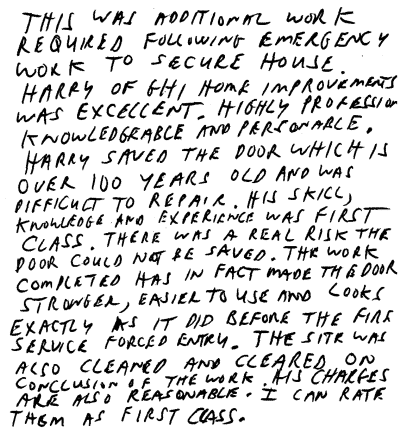 THIS WAS ADDITIONAL WORK
REQUIRED FOLLOWING EMERGENCY
WORK TO SECURE HOUSE.
HARRY OF GHI HOME IMPROVEMENTS
WAS EXCELLENT. HIGHLY PROFESSION
KNOWLEDGEABLE AND PERSONABLE.
HARRY SAVED THE DOOR WHICH IS
OVER 100 YEARS OLD AND WAS
DIFFICULT TO REPAIR. HIS SKILL,
KNOWLEDGE AND EXPERIENCE WAS FIRST
CLASS. THERE WAS A REAL RISK THE
DOOR COULD NOT BE SAVED. THE WORK
COMPLETED HAS IN FACT MADE THE DOOR
STRONGER, EASIER TO USE AND LOOKS
EXACTLY AS IT DID BEFORE THE FIRE
SERVICE FORCED ENTRY. THE SITE WAS
ALSO CLEANED AND CLEARED ON
CONCLUSION OF THE WORK. HIS CHARGES
ARE ALSO REASONABLE. I CAN RATE
THEM AS FIRST CLASS.